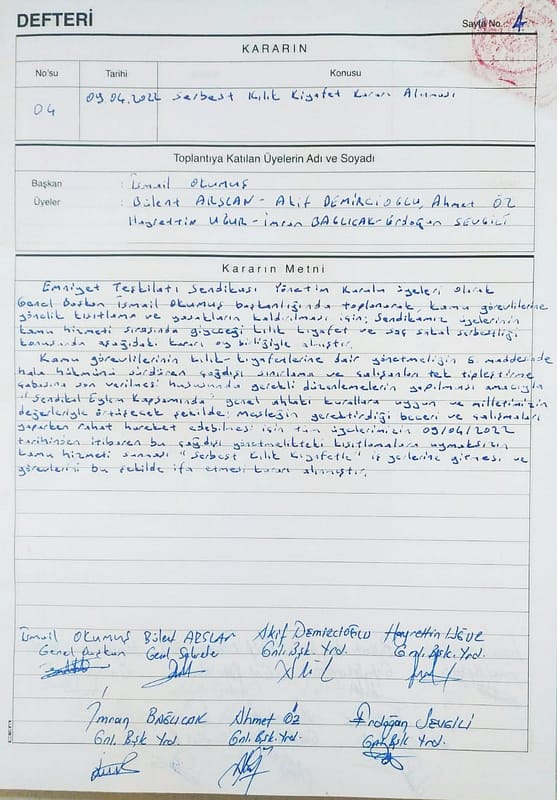 DEFTERİ
Sayfa No.: 4
KARARIN
No'su Tarihi Konusu
04 09.04.2022 Serbest Kılık Kıyafet Kararı Alınması
Toplantıya Katılan Üyelerin Adı ve Soyadı
Başkan : İsmail Okumuş
Üyeler : Bülent ARSLAN - Akif DEMİRCİOĞLU, Ahmet ÖZ
Hayrettin UĞUR - İmran BAĞLICAK - Erdoğan SEVGİLİ
Kararın Metni
Emniyet Teşkilatı Sendikası Yönetim Kurulu üyeleri olarak
Genel Başkan İsmail Okumuş başkanlığında toplanarak, kamu görevlilerine
yönelik kısıtlama ve yasakların kaldırılması için; Sendikamız üyelerinin
kamu hizmeti sırasında giyeceği kılık kıyafet ve saç sakal serbestliği
konusunda aşağıdaki kararı oy birliğiyle almıştır.
Kamu görevlilerinin kılık-kıyafetlerine dair yönetmeliğin 5. maddesinde
hala hükmünü sürdüren çağdışı sınırlama ve çalışanları tek tipleştirme
çabasına son verilmesi hususunda gerekli düzenlemelerin yapılması amacıyla
"Sendikal Eylem Kapsamında" genel ahlaki kurallara uygun ve milletimizin
değerleriyle örtüşecek şekilde; mesleğin gerektirdiği beceri ve çalışmaları
yaparken rahat hareket edebilmesi için tüm üyelerimizin 09/04/2022
tarihinden itibaren bu çağdışı yönetmelikteki kısıtlamalara uymaksızın
kamu hizmeti sunması "Serbest Kılık Kıyafetle" iş yerlerine girmesi ve
görevlerini bu şekilde ifa etmesi kararı alınmıştır.
İsmail Okumuş Bülent ARSLAN Akif Demircioğlu Hayrettin UĞUR
Genel Başkan Genel Sekreter Gnl. Bşk. Yrd. Gnl. Bşk. Yrd.
İmran BAĞLICAK Ahmet ÖZ Erdoğan SEVGİLİ
Gnl. Bşk. Yrd. Gnl. Bşk. Yrd. Gnl. Bşk Yrd.